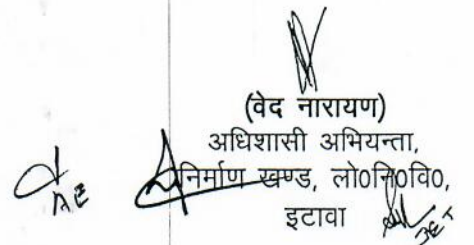 (वेद नारायण)
अधिशासी अभियन्ता,
निर्माण खण्ड, लो०नि०वि०,
इटावा
AE
JET